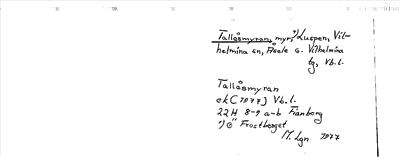 Tallåsmyran, myr, i) Luspen, Vil-
helmina sn, Åsele o. Vilhelmina
tg, Vb. l.
Tallåsmyran
ek (1977) Vb. l.
22 H 8-9 a-b Fianberg
i) ö" Frostberget
M. Lgn 1977